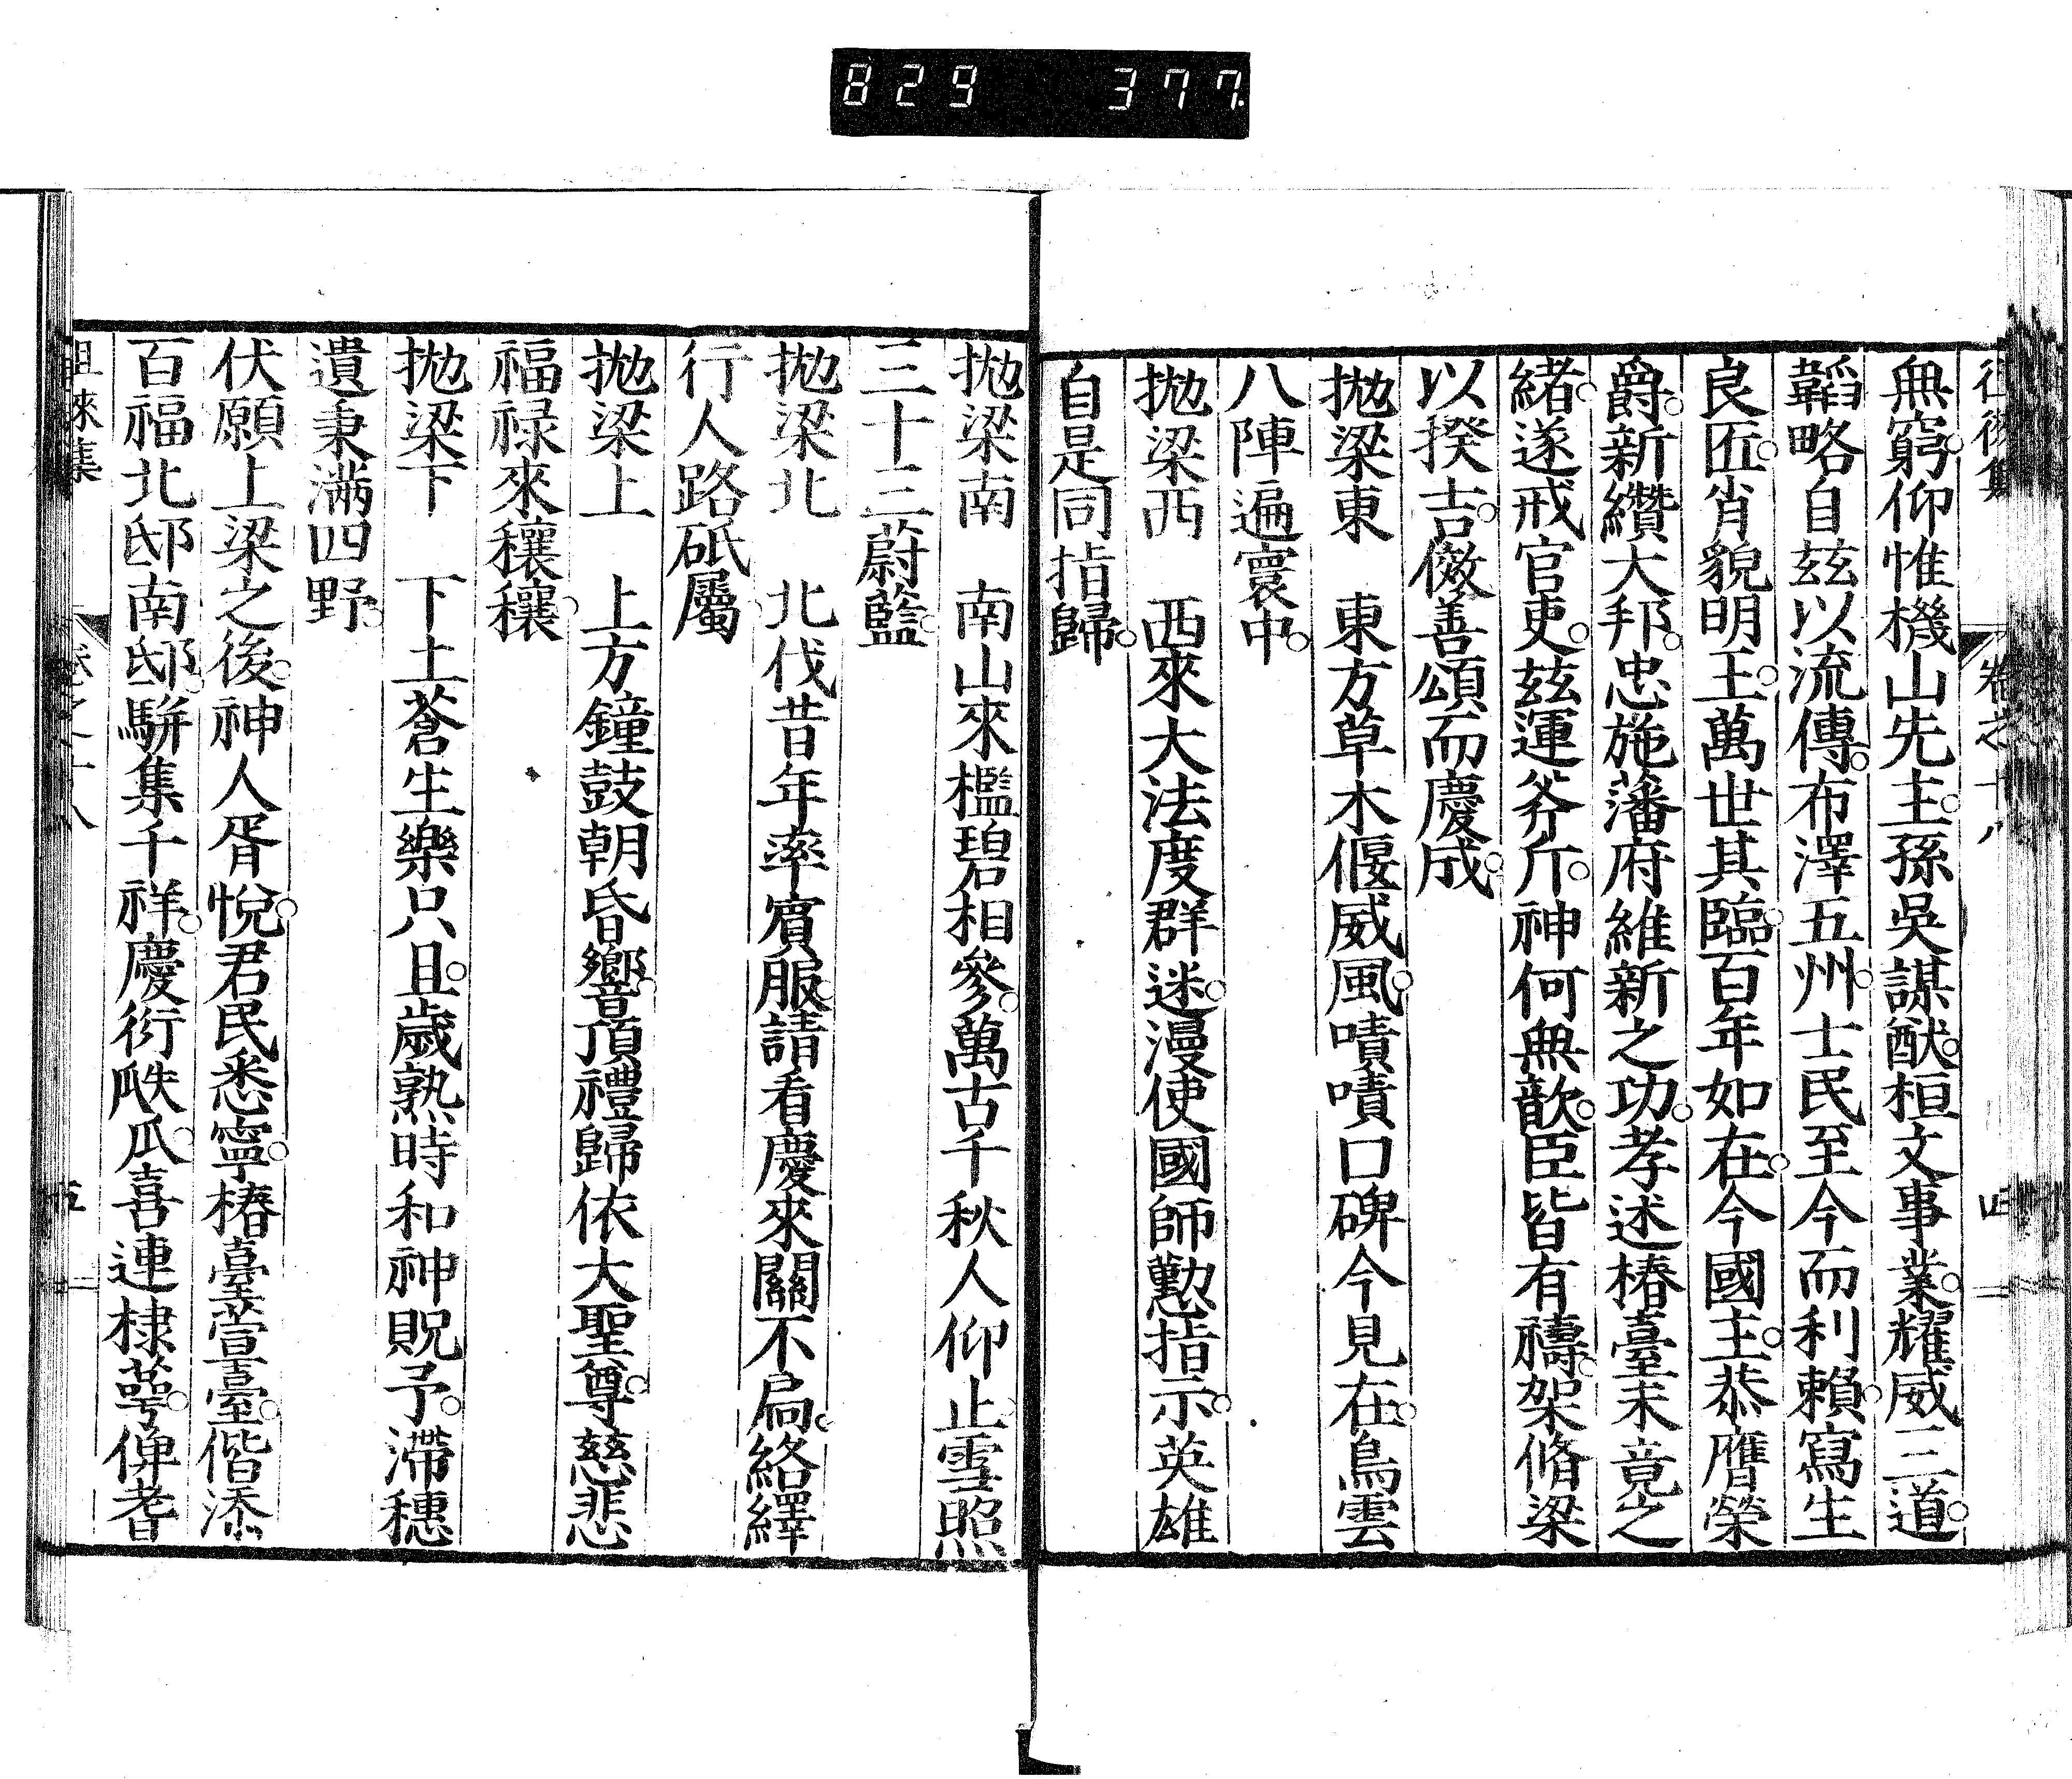 829 377.
無窮。仰惟機山先主。孫吳謀猷。桓文事業。耀威三道。
韜略自玆以流傳。布澤五州。士民至今而利賴。寫生
良匠。肖貌明王。萬世其臨。百年如在。今國主。恭膺榮
爵。新纘大邦。忠施藩府維新之功。孝述椿臺未竟之
緒。遂戒官吏。玆運斧斤。神何無歆。臣皆有禱。架脩梁
以揆吉。倣善頌而慶成。
拋梁東　東方草木偃威風。嘖嘖口碑今見在。鳥雲
八陣遍寰中。
拋梁西　西來大法度群迷。漫使國師懃指示。英雄
自是同指歸。
拋梁南　南山來檻碧相參。萬古千秋人仰止。雪照
三十三蔚藍。
拋梁北　北伐昔年率賓服。請看慶來關不扃。絡繹
行人路砥屬
拋梁上　上方鐘鼓朝昏響。頂禮歸依大聖尊。慈悲
福祿來穰穰。
拋梁下　下土蒼生樂只且。歲熟時和神貺予。滯穗
遺秉滿四野。
伏願上梁之後。神人胥悅。君民悉寧。椿臺萱臺。偕添
百福。北邸南邸。駢集千祥。慶衍瓞瓜。喜連棣萼。俾耆